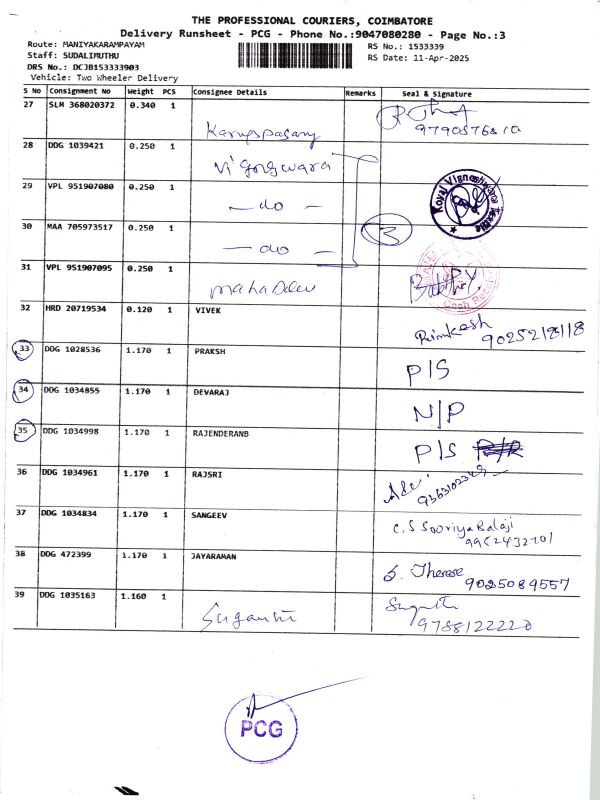 THE PROFESSIONAL COURIERS, COIMBATORE
Delivery Runsheet - PCG - Phone No.:9047080280 - Page No.:3
Route: MANIYAKARAMPAYAM
RS No.: 1533339
Staff: SUDALIMUTHU
RS Date: 11-Apr-2025
DRS No.: DCJB153333903
Vehicle: Two Wheeler Delivery
S No Consignment No Weight PCS Consignee Details Remarks Seal & Signature
27 SLM 368020372 0.340 1
28 DDG 1039421 0.250 1
29 VPL 951907080 0.250 1 -do-
30 MAA 705973517 0.250 1 -do- 3
31 VPL 951907095 0.250 1 mahadev
32 HRD 20719534 0.120 1 VIVEK 9025218118
33 DDG 1028536 1.170 1 PRAKSH P/S
34 DDG 1034855 1.170 1 DEVARAJ N/P
35 DDG 1034998 1.170 1 RAJENDERANB P/S
36 DDG 1034961 1.170 1 RAJSRI
37 DDG 1034834 1.170 1 SANGEEV C.S Sooriya Balaji
38 DDG 472399 1.170 1 JAYARAMAN S. Therese 9025089557
39 DDG 1035163 1.160 1 9788122220
PCG